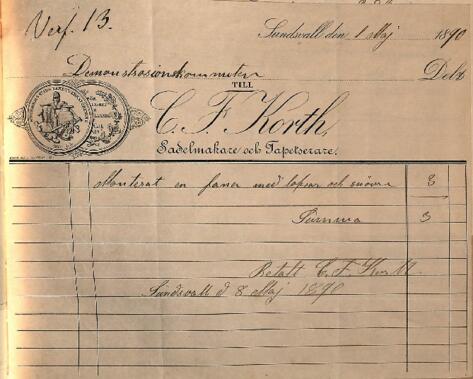 Verf. 13.
Sundsvall den 1 Maj 1890
Demonstrasionskommiten Debet
TILL
C. F. Korth,
Sadelmakare och Tapetserare.
Monterat en faner med tofsar och snören 3
Summa 3
Betalt C. F. Korth
Sundsvall d 8 Maj 1890